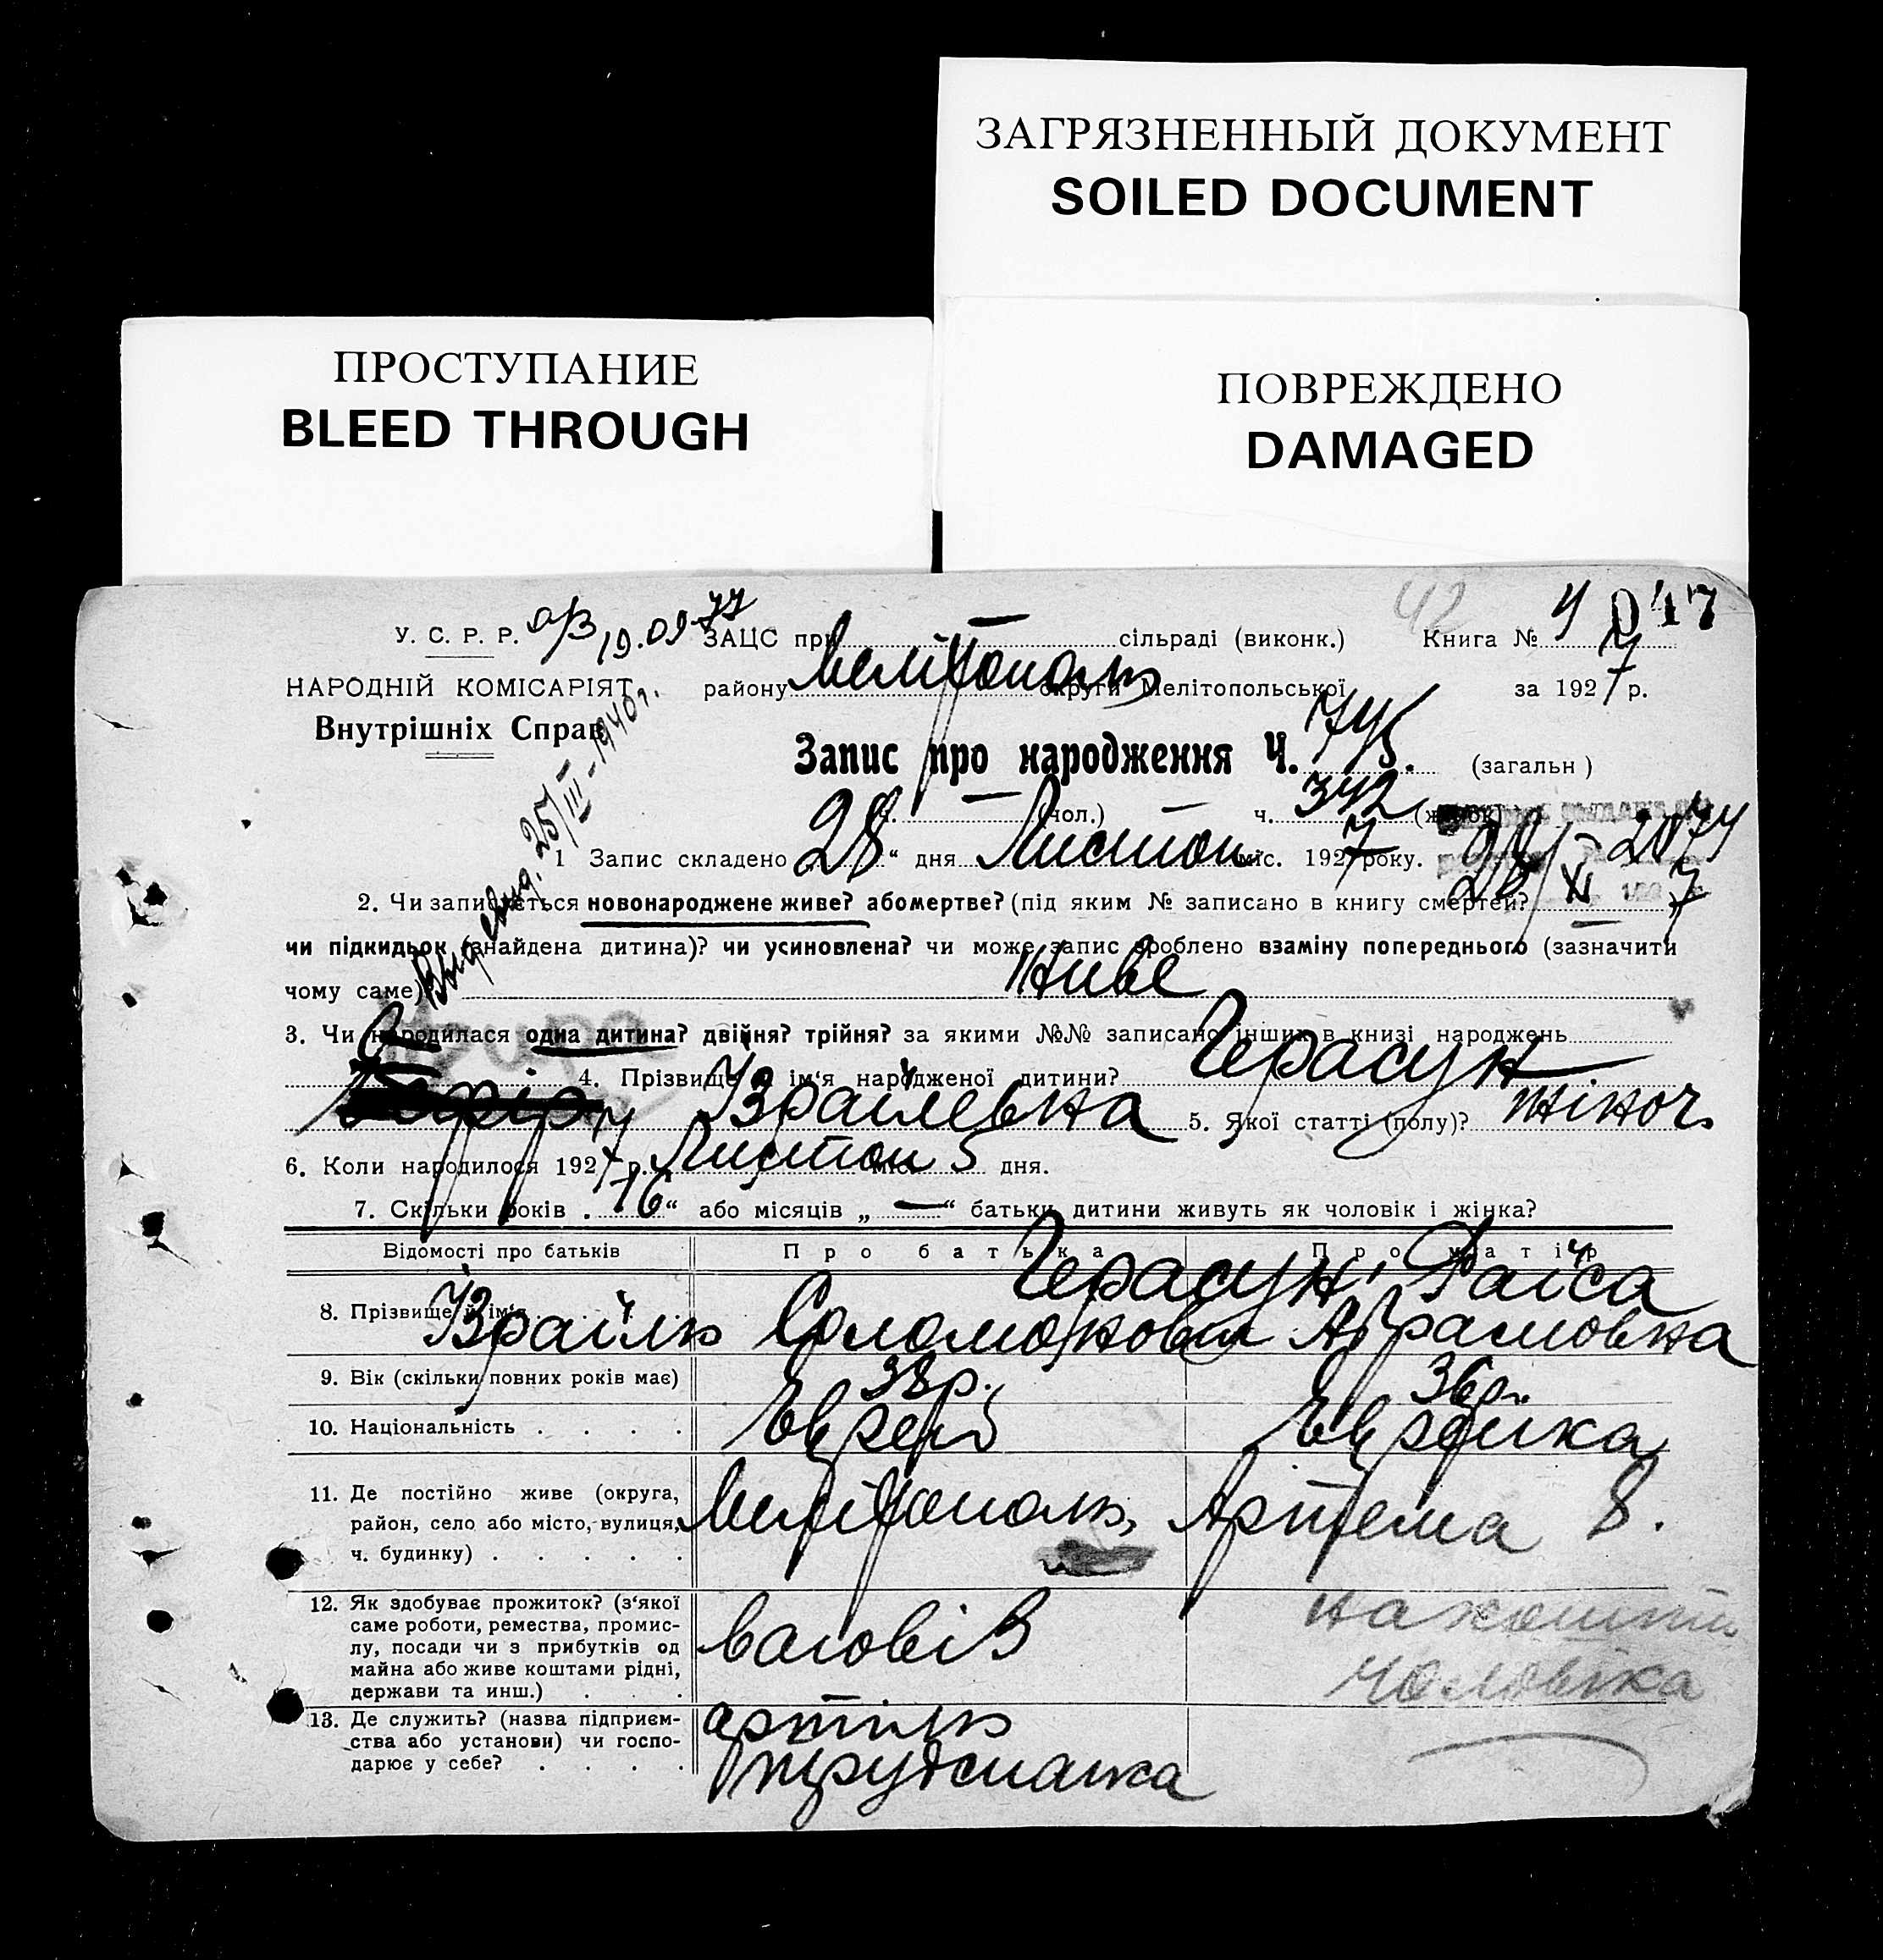 ЗАГРЯЗНЕННЫЙ ДОКУМЕНТ
SOILED DOCUMENT
ПРОСТУПАНИЕ
BLEED THROUGH
ПОВРЕЖДЕНО
DAMAGED
42 4 047
У. С. Р. Р. 19.09.77 ЗАЦС при — сільраді (виконк.) Книга № 7
НАРОДНІЙ КОМІСАРІЯТ району Мелітополь округи Мелітопольської за 1927 р.
Внутрішніх Справ
Запис про народження Ч. 745. (загальн)
ч. — (чол.) — ч. 342 (жінок)
1 Запис складено 28 “ дня Листоп міс. 1927 року.
28/XI 2074
7
Выд. свид. 25/III-1940г.
2. Чи записується новонароджене живе? або мертве? (під яким № записано в книгу смертей? —
чи підкидьок (знайдена дитина)? чи усиновлена? чи може запис зроблено взаміну попереднього (зазначити
чому саме) живе
3. Чи народилася одна дитина? двійня? трійня? за якими №№ записано інших в книзі народжень
4. Прізвище й ім‘я народженої дитини? Герасун
Ізраїлевна 5. Якої статті (полу)? жіноч.
6. Коли народилося 1927 р. Листоп міс. 5 дня.
7. Скільки років „ 16 “ або місяців „ — “ батьки дитини живуть як чоловік і жінка?
Відомості про батьків Про батька Про матір
Герасун, Раїса
8. Прізвище й ім‘я Ізраїль Соломонович Абрамовна
9. Вік (скільки повних років має) 38р. 36р.
10. Національність . . . . Єврей Єврейка
11. Де постійно живе (округа,
район, село або місто, вулиця, Мелітополь, Артема 8.
ч. будинку) . . . . .
12. Як здобуває прожиток? (з‘якої
саме роботи, ремества, промис-
лу, посади чи з прибутків од
майна або живе коштами рідні,
держави та инш.) . . .
ваговік
на кошти
чоловіка
13. Де служить? (назва підприєм-
ства або установи) чи госпо-
дарює у себе? . . . .
артіль